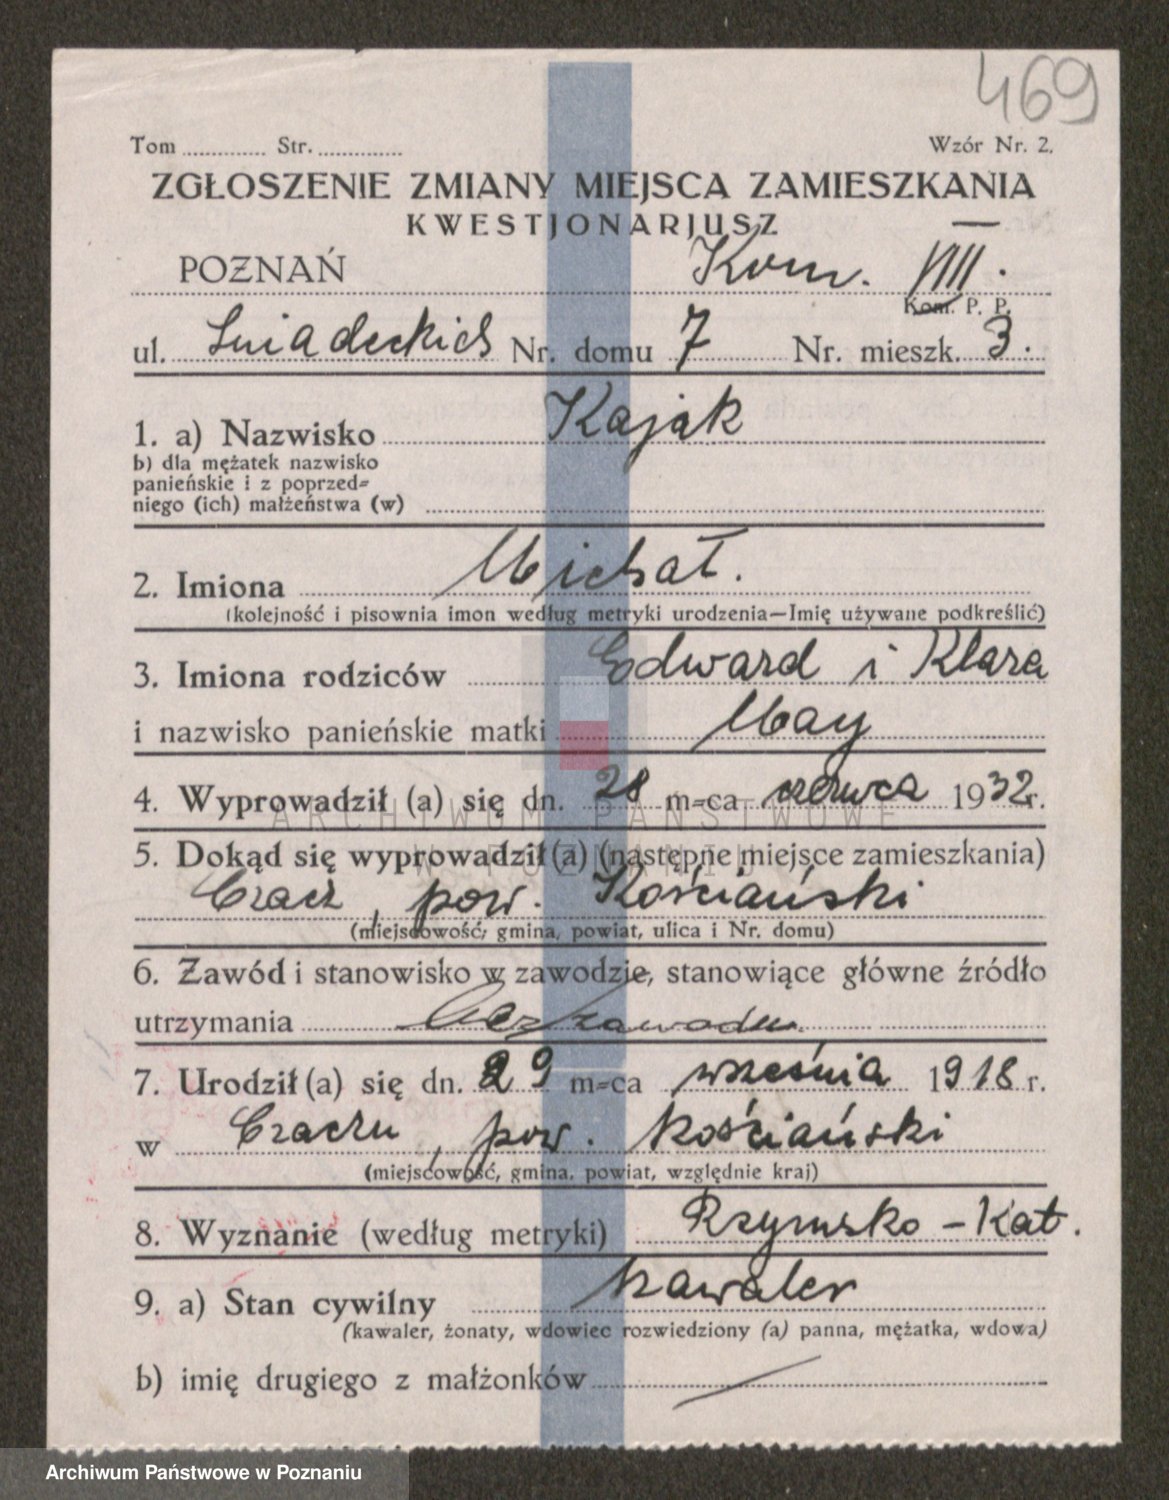 469
Tom ............ Str. ............ Wzór Nr. 2.
ZGŁOSZENIE ZMIANY MIEJSCA ZAMIESZKANIA
KWESTJONARJUSZ
POZNAŃ Kom. VIII.
Kom. P. P.
ul. Śniadeckich Nr. domu 7 Nr. mieszk. 3.
1. a) Nazwisko Kajak
b) dla mężatek nazwisko
panieńskie i z poprzed=
niego (ich) małżeństwa (w)
2. Imiona Michał.
(kolejność i pisownia imon według metryki urodzenia—Imię używane podkreślić)
3. Imiona rodziców Edward i Klara
i nazwisko panieńskie matki May
4. Wyprowadził (a) się dn. 28 m=ca czerwca 1932 r.
ARCHIWUM PAŃSTWOWE
W POZNANIU
5. Dokąd się wyprowadził (a) (następne miejsce zamieszkania)
Czacz, pow. Kościański
(miejscowość, gmina, powiat, ulica i Nr. domu)
6. Zawód i stanowisko w zawodzie, stanowiące główne źródło
utrzymania bez zawodu.
7. Urodził (a) się dn. 29 m=ca września 1918 r.
w Czaczu, pow. Kościański
(miejscowość, gmina, powiat, względnie kraj)
8. Wyznanie (według metryki) Rzymsko-Kat.
9. a) Stan cywilny kawaler
(kawaler, żonaty, wdowiec rozwiedziony (a) panna, mężatka, wdowa)
b) imię drugiego z małżonków
Archiwum Państwowe w Poznaniu